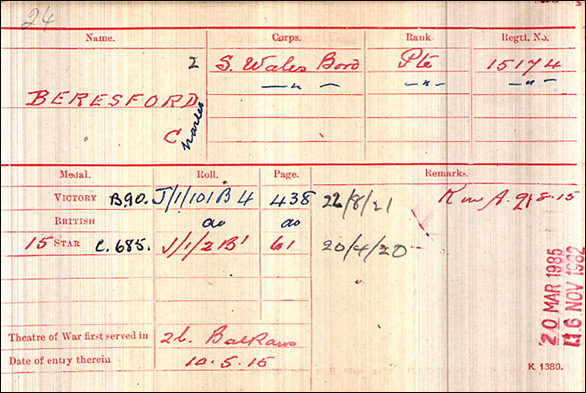 24
Name. Corps. Rank. Regtl. No.
2 S. Wales Bord Pte 15174
—"— —"— —"—
BERESFORD
Charles
Medal. Roll. Page. Remarks.
VICTORY B90. J/1/101 B 4 438 22/8/21 K in A. 9.8.15
BRITISH do do
15 STAR C.685. J/1/2 B' 61 20/4/20
20 MAR 1985
16 NOV 1982
Theatre of War first served in 2b. Balkans
Date of entry therein 10.5.15
K. 1380.